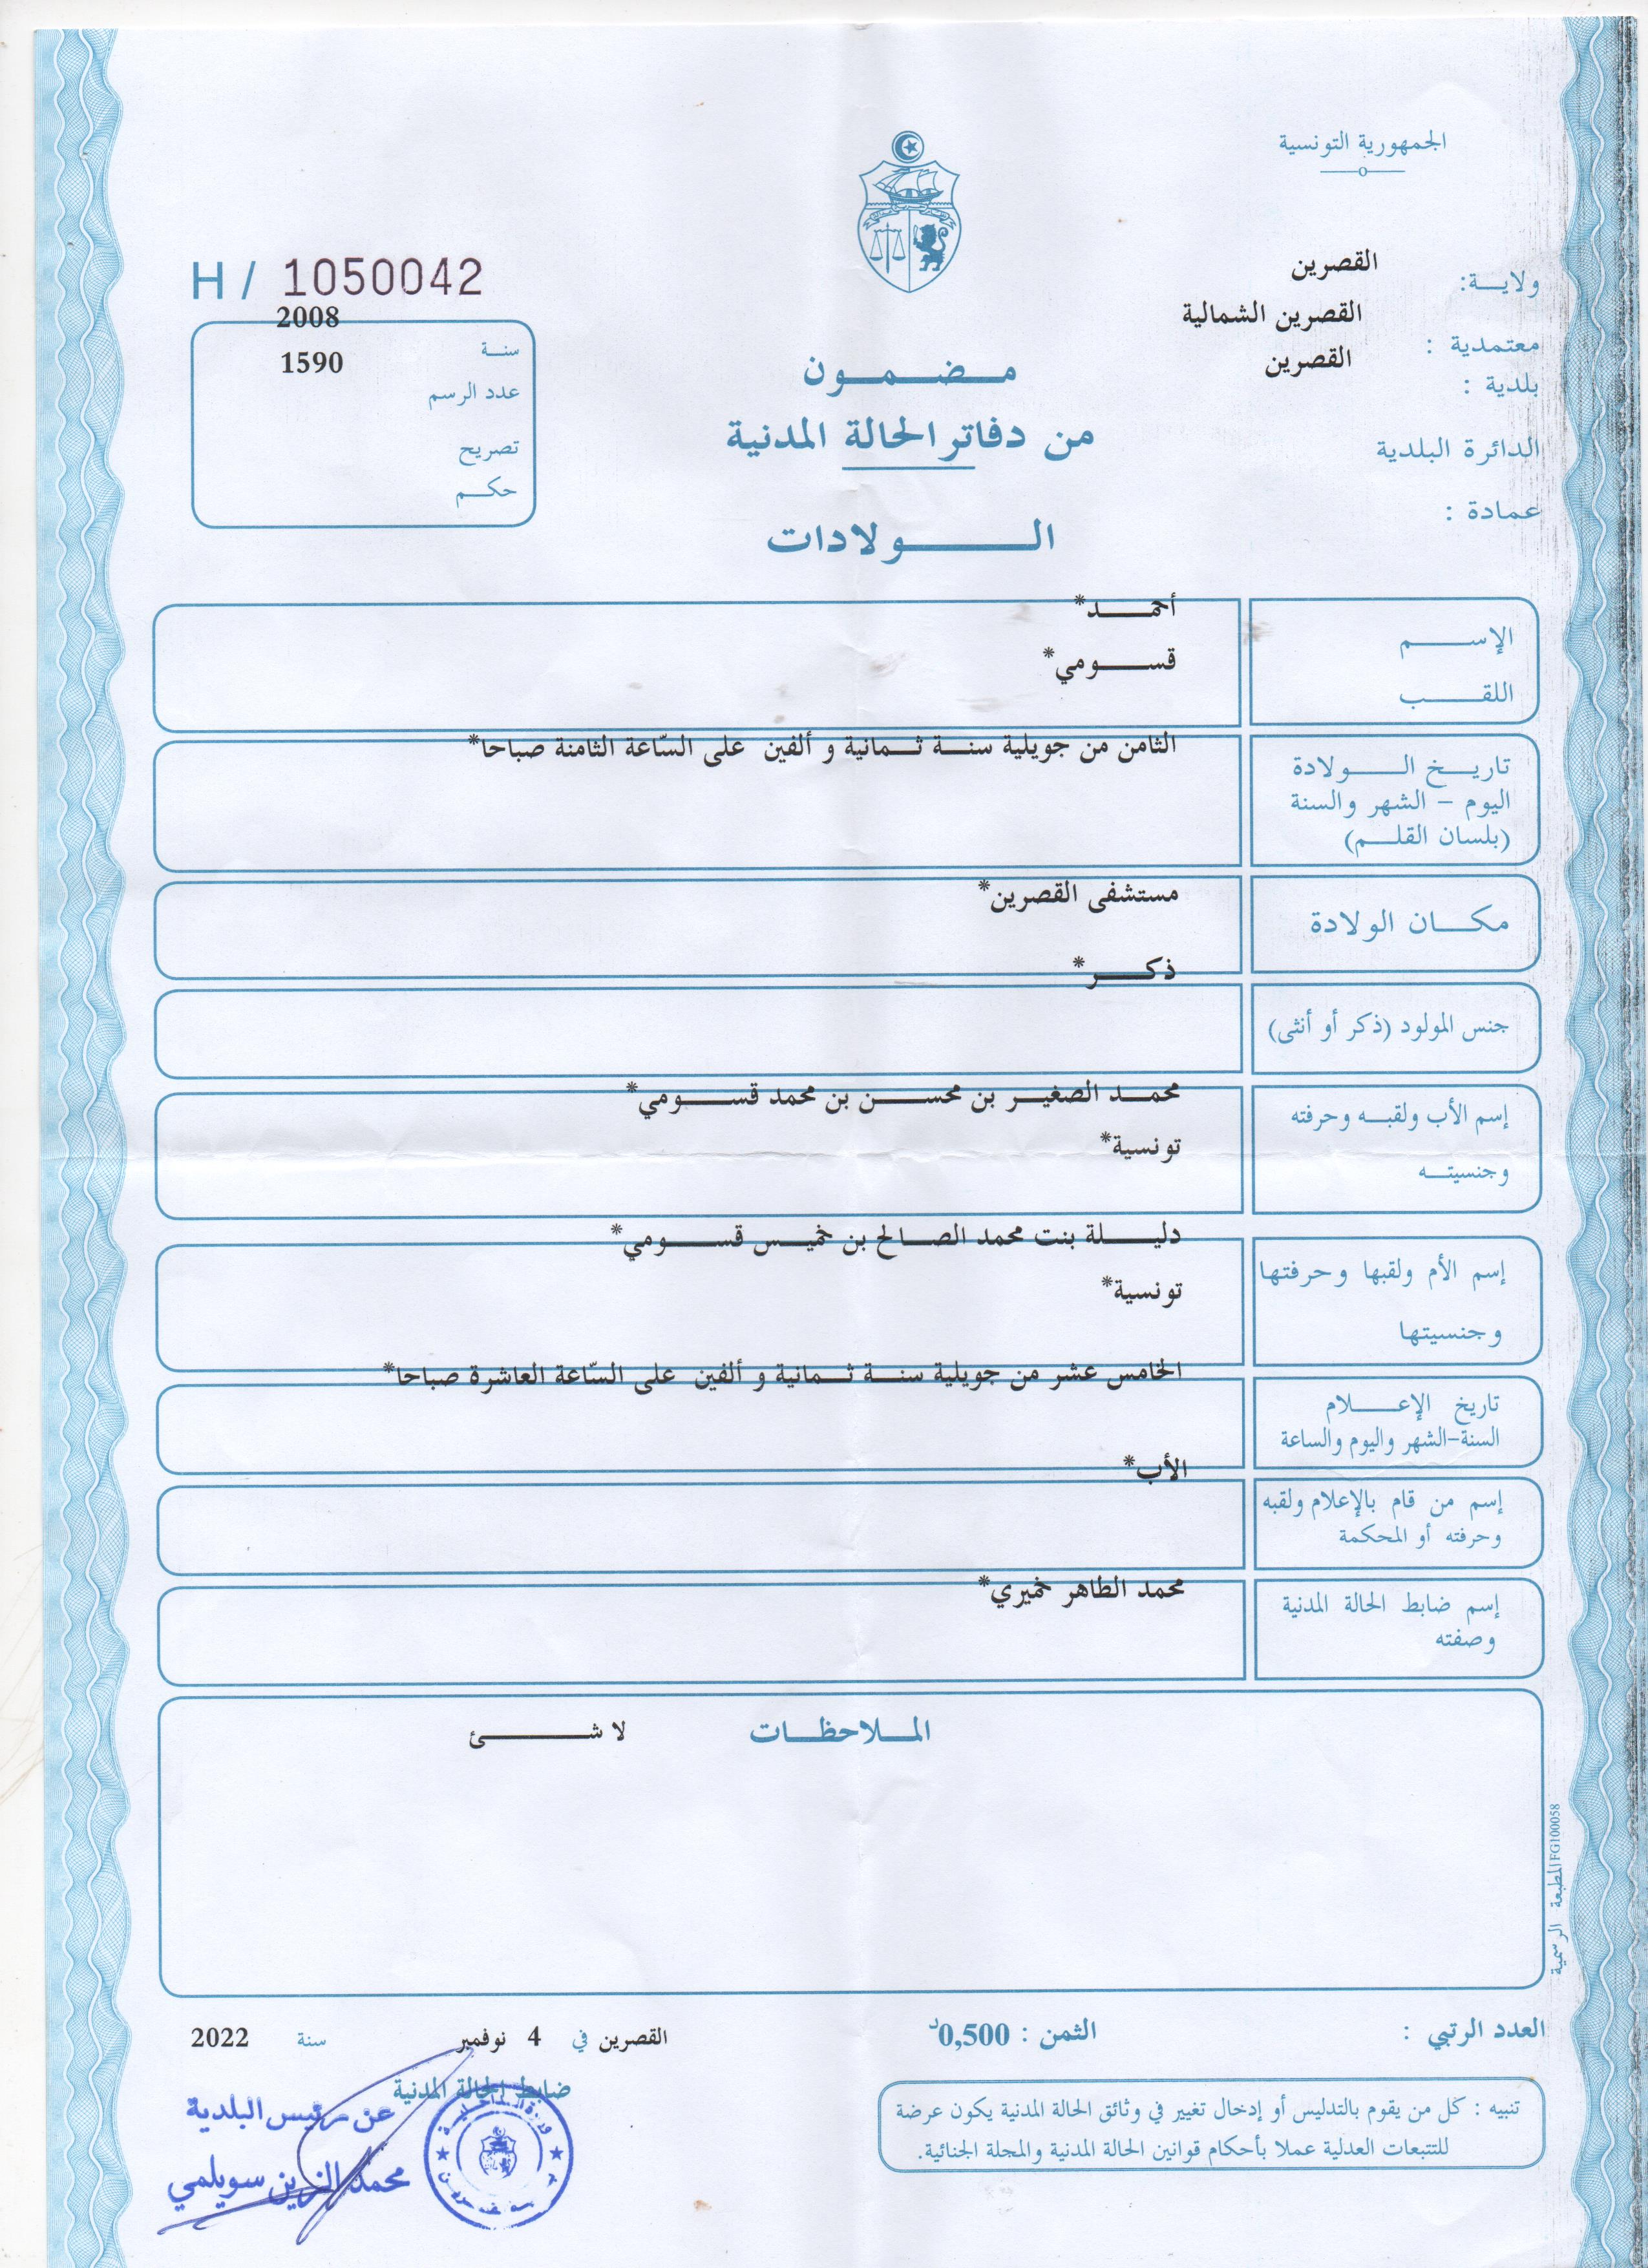 الجمهورية التونسية
ولاية: القصرين
معتمدية : القصرين الشمالية
بلدية : القصرين
الدائرة البلدية
عمادة :
H / 1050042
سنة 2008
عدد الرسم 1590
تصريح
حكم
مضمون
من دفاتر الحالة المدنية
الولادات
الإسم أحمد*
اللقب قسومي*
تاريخ الولادة
اليوم - الشهر والسنة
(بلسان القلم)
الثامن من جويلية سنة ثمانية و ألفين على السّاعة الثامنة صباحا*
مكان الولادة مستشفى القصرين*
جنس المولود (ذكر أو أنثى) ذكر*
إسم الأب ولقبه وحرفته
وجنسيته
محمد الصغير بن محسن بن محمد قسومي*
تونسية*
إسم الأم ولقبها وحرفتها
وجنسيتها
دليلة بنت محمد الصالح بن خميس قسومي*
تونسية*
تاريخ الإعلام
السنة-الشهر واليوم والساعة
الخامس عشر من جويلية سنة ثمانية و ألفين على السّاعة العاشرة صباحا*
إسم من قام بالإعلام ولقبه
وحرفته أو المحكمة
الأب*
إسم ضابط الحالة المدنية
وصفته
محمد الطاهر خميري*
الملاحظات لا شئ
المطبعة الرسمية FG100058
العدد الرتبي :
الثمن : 0,500د
القصرين في 4 نوفمبر سنة 2022
ضابط الحالة المدنية
عن رئيس البلدية
محمد الزين سويلمي
تنبيه : كل من يقوم بالتدليس أو إدخال تغيير في وثائق الحالة المدنية يكون عرضة
للتتبعات العدلية عملا بأحكام قوانين الحالة المدنية والمجلة الجنائية.